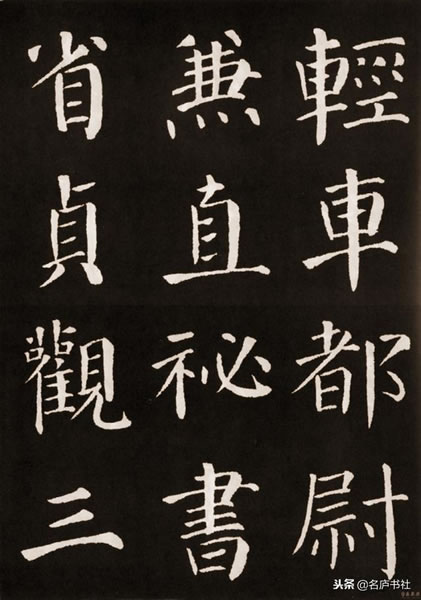 輕車都尉
兼直祕書
省貞觀三
头条 @名庐书社